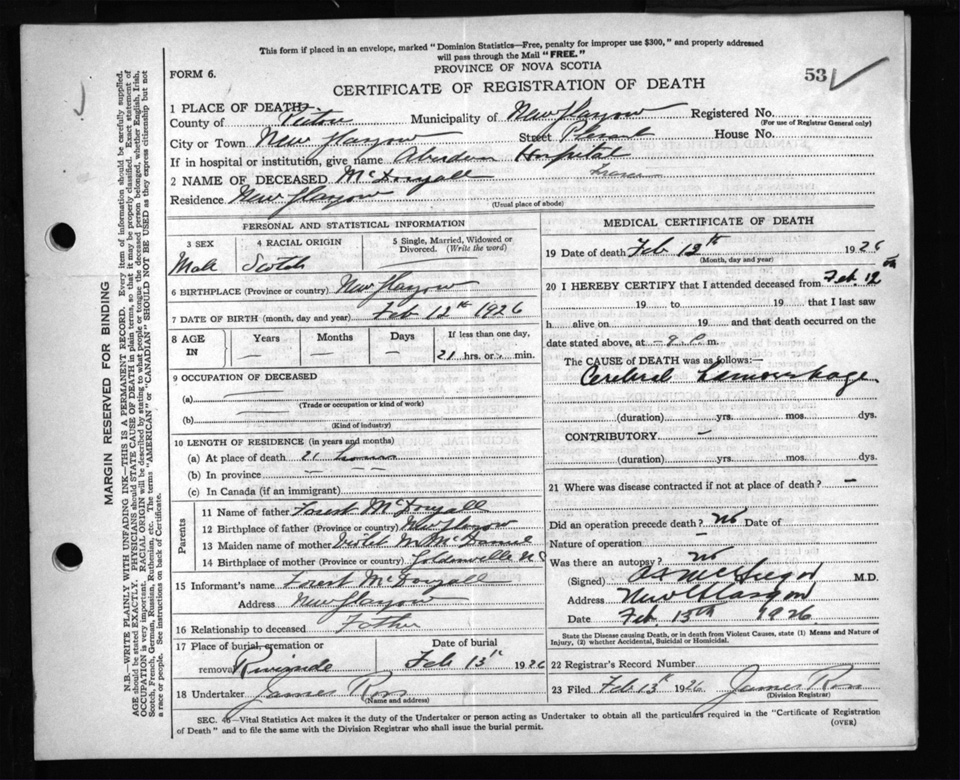 This form if placed in an envelope, marked "Dominion Statistics—Free, penalty for improper use $300," and properly addressed
will pass through the Mail "FREE."
PROVINCE OF NOVA SCOTIA
FORM 6.
CERTIFICATE OF REGISTRATION OF DEATH
53
1 PLACE OF DEATH
County of Pictou Municipality of New Glasgow Registered No.
(For use of Registrar General only)
City or Town New Glasgow Street Pleasant House No.
If in hospital or institution, give name Aberdeen Hospital
2 NAME OF DECEASED McDougall
Residence New Glasgow
(Usual place of abode)
PERSONAL AND STATISTICAL INFORMATION
3 SEX 4 RACIAL ORIGIN 5 Single, Married, Widowed or Divorced. (Write the word)
Male Scotch
6 BIRTHPLACE (Province or country) New Glasgow
7 DATE OF BIRTH (month, day and year) Feb 12th 1926
8 AGE IN Years Months Days If less than one day,
21 hrs. or min.
9 OCCUPATION OF DECEASED
(a)
(Trade or occupation or kind of work)
(b)
(Kind of industry)
10 LENGTH OF RESIDENCE (in years and months)
(a) At place of death 21 hours
(b) In province — —
(c) In Canada (if an immigrant)
Parents
11 Name of father Forest McDougall
12 Birthplace of father (Province or country) New Glasgow
13 Maiden name of mother Violet M McDaniel
14 Birthplace of mother (Province or country) Goldenville NS
15 Informant's name Forest McDougall
Address New Glasgow
16 Relationship to deceased Father
17 Place of burial, cremation or removal Riverside Date of burial Feb 13th 1926
18 Undertaker James Ross
(Name and address)
MEDICAL CERTIFICATE OF DEATH
19 Date of death Feb 12th 1926
(Month, day and year)
20 I HEREBY CERTIFY that I attended deceased from Feb. 12th
19 to 19 that I last saw
h alive on 19 and that death occurred on the
date stated above, at - 8 P. m.
The CAUSE of DEATH was as follows:—
Cerebral hemorrhage
(duration) yrs. mos. dys.
CONTRIBUTORY —
(duration) yrs. mos. dys.
21 Where was disease contracted if not at place of death? —
Did an operation precede death? No Date of
Nature of operation —
Was there an autopsy? No
(Signed) M.D.
Address New Glasgow
Date Feb 13th 1926.
State the Disease causing Death, or in death from Violent Causes, state (1) Means and Nature of
Injury, (2) whether Accidental, Suicidal or Homicidal.
22 Registrar's Record Number
23 Filed Feb 13th 1926 James Ross
(Division Registrar)
SEC. 48—Vital Statistics Act makes it the duty of the Undertaker or person acting as Undertaker to obtain all the particulars required in the "Certificate of Registration
of Death" and to file the same with the Division Registrar who shall issue the burial permit.
(OVER)
MARGIN RESERVED FOR BINDING
N.B.—WRITE PLAINLY WITH UNFADING INK—THIS IS A PERMANENT RECORD. Every item of information should be carefully supplied.
AGE should be stated EXACTLY. PHYSICIANS should STATE CAUSE OF DEATH in plain terms, so that it may be properly classified. Exact statement of
OCCUPATION is very important. RACIAL ORIGIN will be described by stating to what people or tongue the deceased person belonged, whether English, Irish,
Scotch, French, German, Russian, Ruthenian, etc. The terms "AMERICAN" or "CANADIAN" SHOULD NOT BE USED as they express citizenship but not
a race or people. See instructions on back of Certificate.